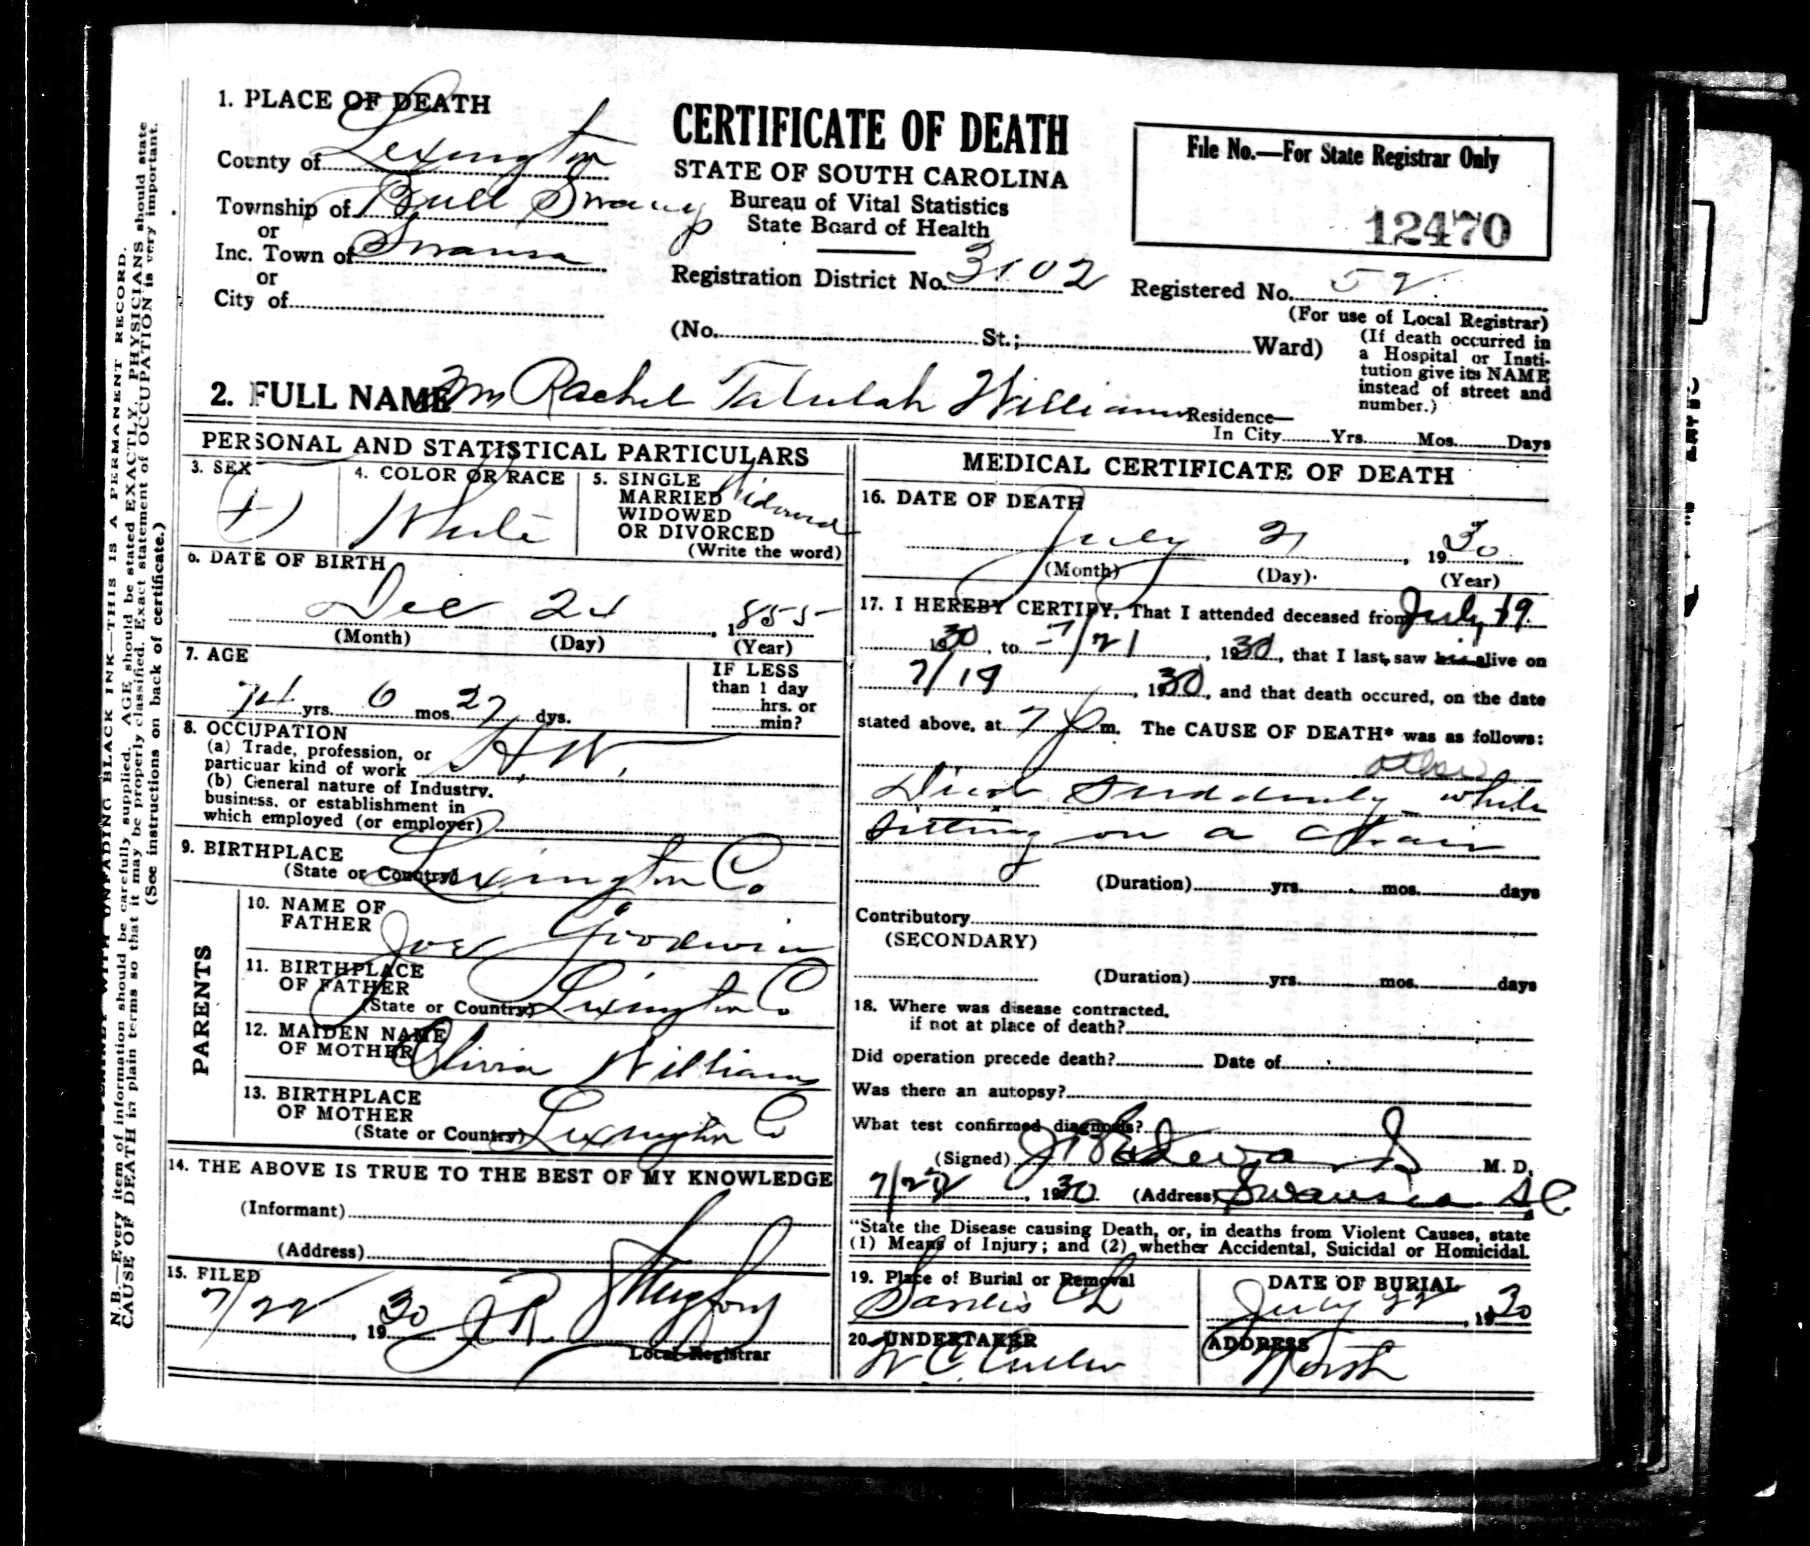 1. PLACE OF DEATH
County of Lexington
Township of Bull Swamp
or
Inc. Town of Swansea
or
City of
CERTIFICATE OF DEATH
STATE OF SOUTH CAROLINA
Bureau of Vital Statistics
State Board of Health
Registration District No. 3102
File No.—For State Registrar Only
12470
Registered No. 52
(For use of Local Registrar)
(No. St.; Ward)
(If death occurred in
a Hospital or Insti-
tution give its NAME
instead of street and
number.)
2. FULL NAME Rachel Talulah Williams
Residence—
In City Yrs. Mos. Days
PERSONAL AND STATISTICAL PARTICULARS
3. SEX
4. COLOR OR RACE
White
5. SINGLE
MARRIED
WIDOWED
OR DIVORCED
(Write the word)
Widowed
6. DATE OF BIRTH
Dec 24, 1855
(Month) (Day) (Year)
7. AGE
74 yrs. 6 mos. 27 dys.
IF LESS
than 1 day
hrs. or
min?
8. OCCUPATION
(a) Trade, profession, or
particuar kind of work H.W.
(b) General nature of Industry.
business, or establishment in
which employed (or employer)
9. BIRTHPLACE
(State or Country) Lexington Co
PARENTS
10. NAME OF
FATHER Joel Goodwin
11. BIRTHPLACE
OF FATHER
(State or Country) Lexington Co
12. MAIDEN NAME
OF MOTHER Olivia Williams
13. BIRTHPLACE
OF MOTHER
(State or Country) Lexington Co
14. THE ABOVE IS TRUE TO THE BEST OF MY KNOWLEDGE
(Informant)
(Address)
15. FILED
7/22, 1930
Local Registrar
MEDICAL CERTIFICATE OF DEATH
16. DATE OF DEATH
July 21, 1930
(Month) (Day) (Year)
17. I HEREBY CERTIFY, That I attended deceased from July 19
1930, to 7/21, 1930, that I last saw alive on
7/19, 1930, and that death occured, on the date
stated above, at 7 p m. The CAUSE OF DEATH* was as follows:
Died Suddenly while
sitting on a chair
(Duration) yrs. mos. days
Contributory
(SECONDARY)
(Duration) yrs. mos. days
18. Where was disease contracted,
if not at place of death?
Did operation precede death? Date of
Was there an autopsy?
What test confirmed diagnosis?
(Signed) M. D.
7/22, 1930. (Address) Swansea SC
"State the Disease causing Death, or, in deaths from Violent Causes, state
(1) Means of Injury; and (2) whether Accidental, Suicidal or Homicidal.
19. Place of Burial or Removal
Sardis Ch
DATE OF BURIAL
July 22, 1930
20. UNDERTAKER
W C Culler
ADDRESS
North
N. B.—Every item of information should be carefully supplied. AGE should be stated EXACTLY. PHYSICIANS should state
CAUSE OF DEATH in plain terms so that it may be properly classified. Exact statement of OCCUPATION is very important.
(See instructions on back of certificate.)